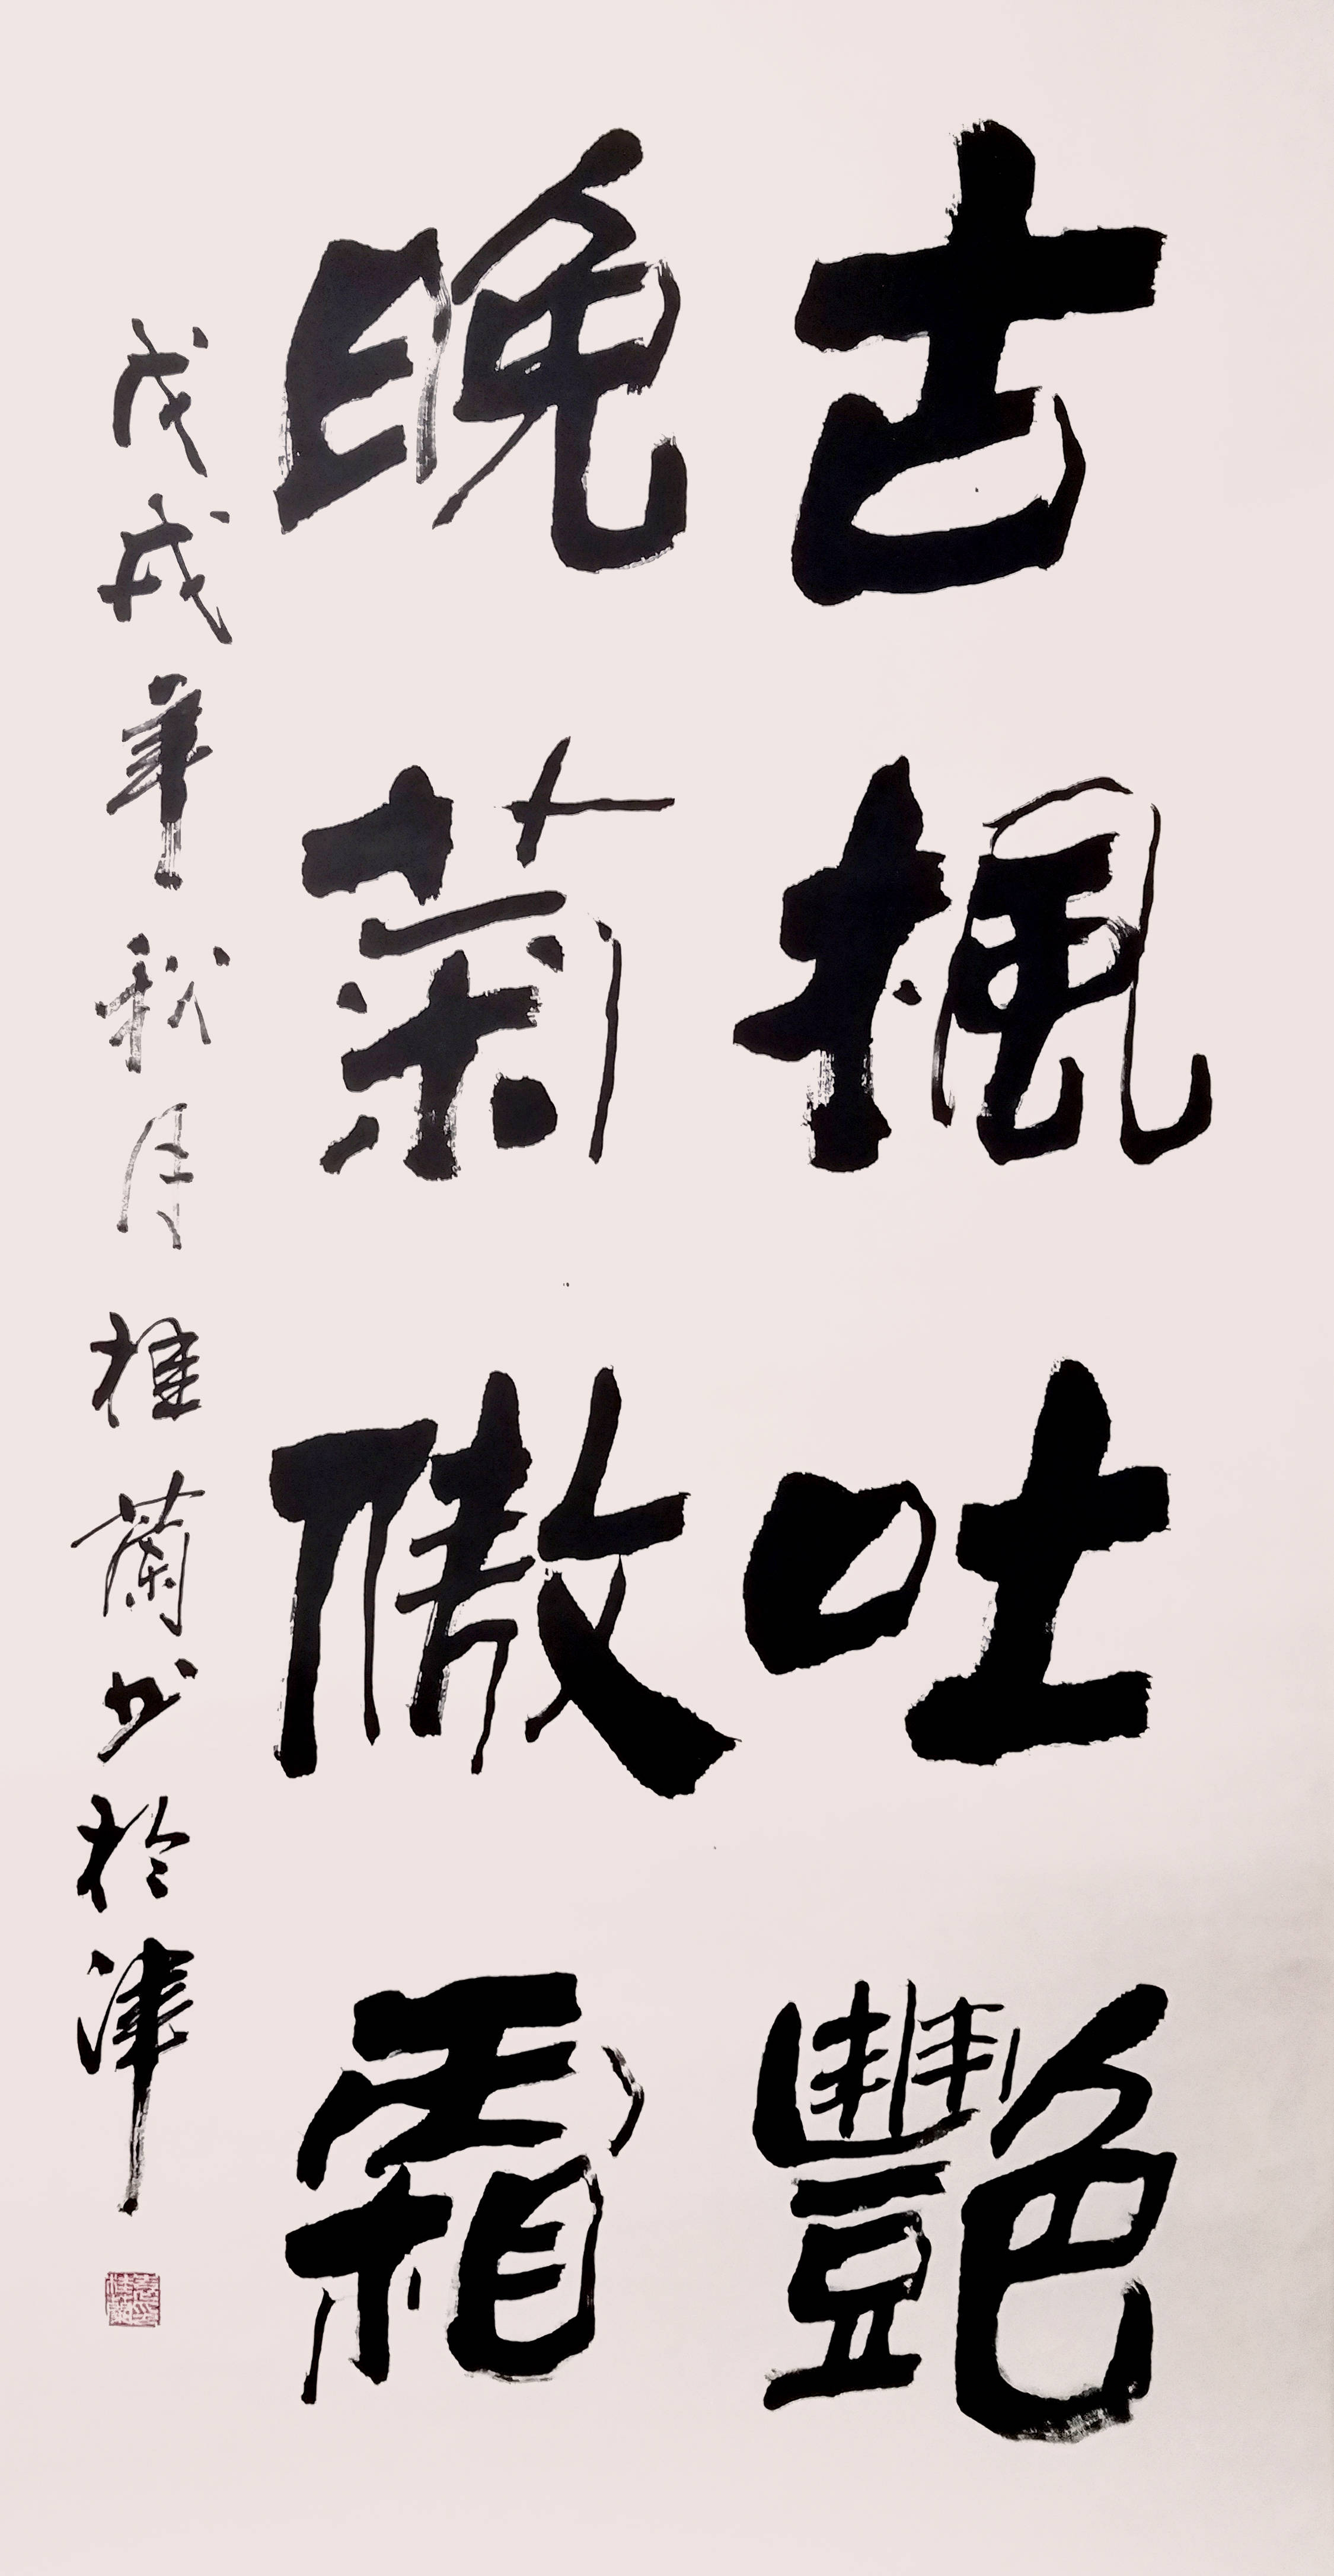 古楓吐艷
晚菊傲霜
戊戌年秋月桂蘭書於津